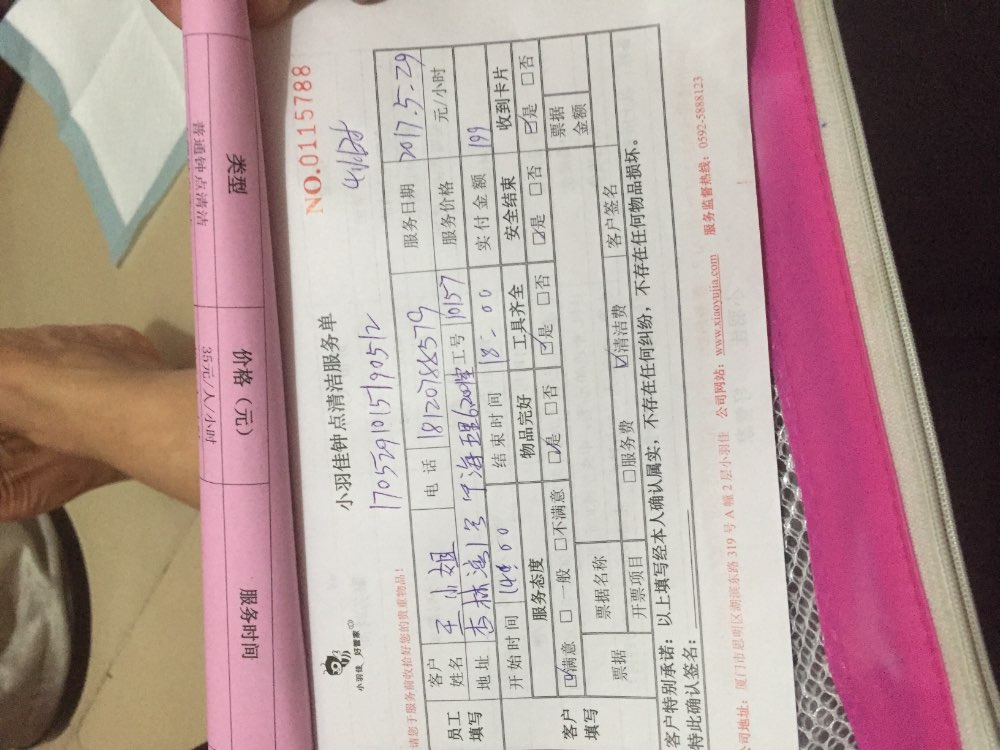 类型
价格（元）
服务时间
普通钟点清洁
35元/人/小时
NO.0115788
小羽佳 好管家
小羽佳钟点清洁服务单
请您于服务前收拾好您的贵重物品！
1705291015190512
员工填写
客户姓名
王小姐
电话
18120788579
服务日期
2017.5.29
地址
工号
10157
服务价格
元/小时
开始时间
14:00
结束时间
18:00
实付金额
199
客户填写
服务态度
物品完好
工具齐全
安全结束
收到卡片
☑满意 □一般 □不满意
☑是 □否
☑是 □否
☑是 □否
☑是 □否
票据
票据名称
票据金额
开票项目
□服务费 ☑清洁费
客户签名
客户特别承诺：以上填写经本人确认属实，不存在任何纠纷，不存在任何物品损坏。
特此确认签名：
公司地址：厦门市思明区湖滨东路319号A幢2层小羽佳 公司网站：www.xiaoyujia.com 服务监督热线：0592-5888123